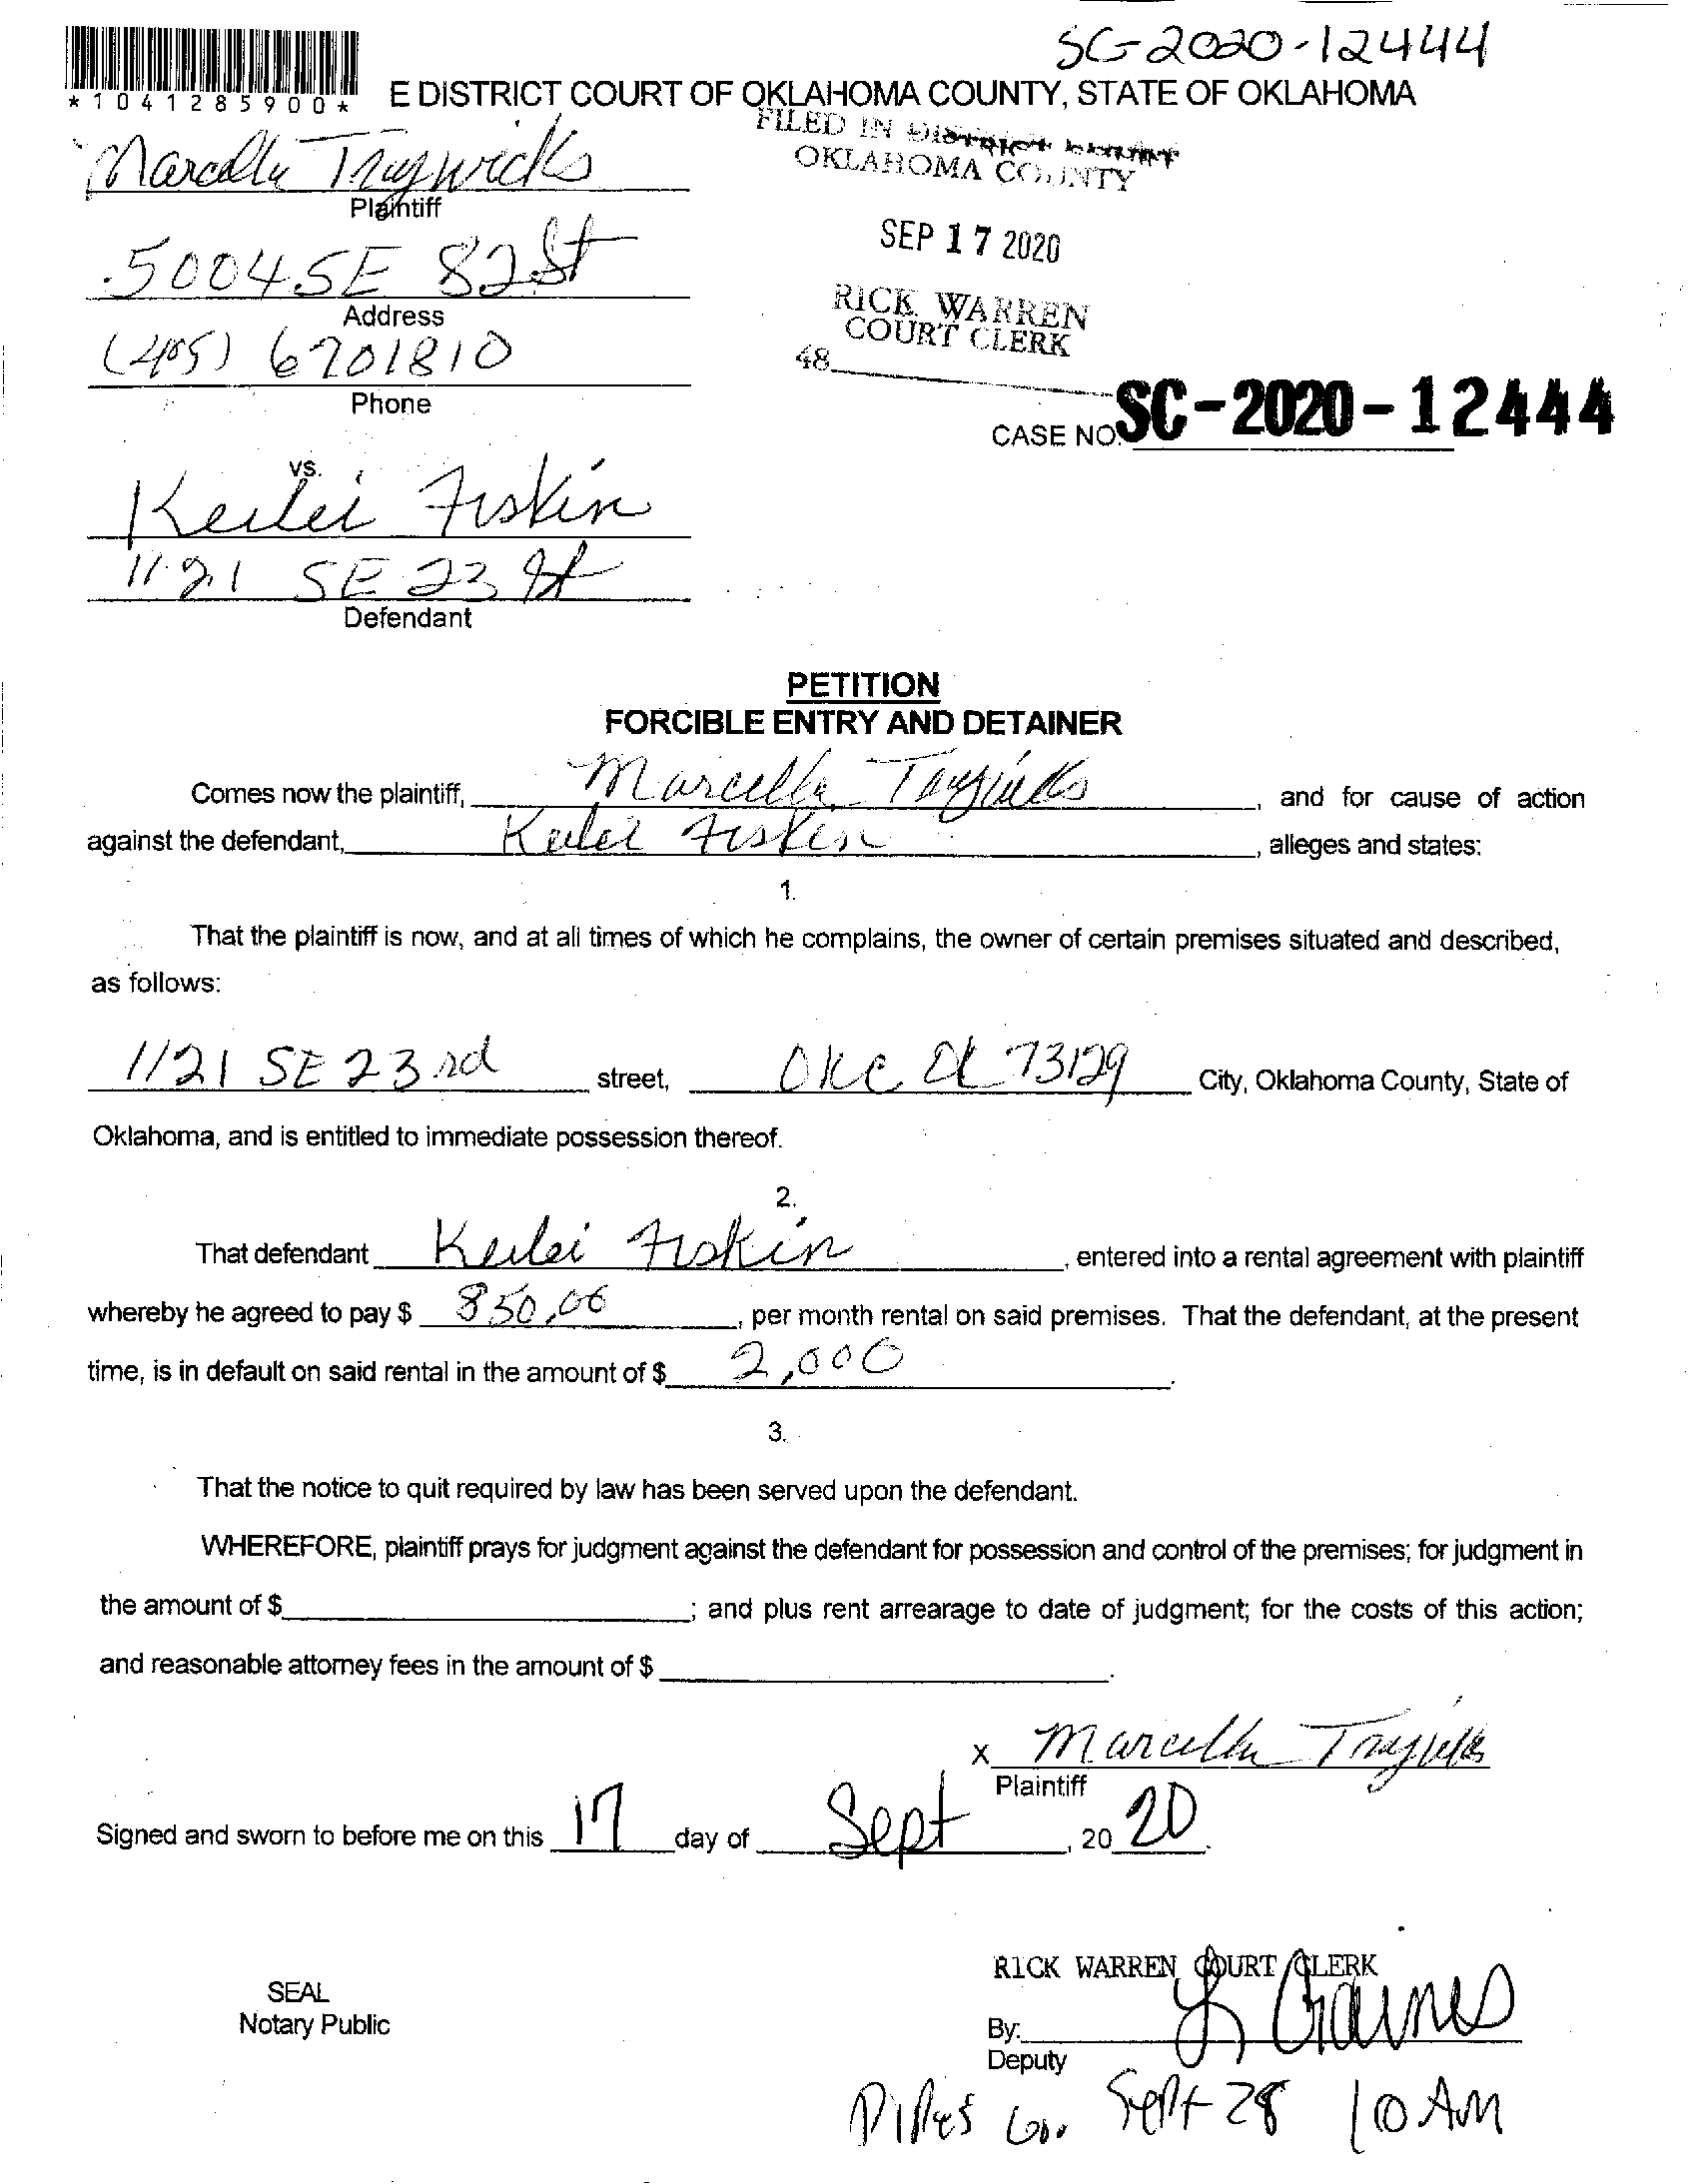 SC-2020-12444
*1041285900*
E DISTRICT COURT OF OKLAHOMA COUNTY, STATE OF OKLAHOMA
FILED IN DISTRICT COURT
OKLAHOMA COUNTY
SEP 17 2020
RICK WARREN
COURT CLERK
48
Marcella
Plaintiff
5004 SE 82 St
Address
(405) 6701810
Phone
CASE NO. SC-2020-12444
vs.
Keilei
1121 SE 23 St
Defendant
PETITION
FORCIBLE ENTRY AND DETAINER
Comes now the plaintiff, Marcella , and for cause of action
against the defendant, Keilei , alleges and states:
1.
That the plaintiff is now, and at all times of which he complains, the owner of certain premises situated and described,
as follows:
1121 SE 23rd street, OKC OK 73129 City, Oklahoma County, State of
Oklahoma, and is entitled to immediate possession thereof.
2.
That defendant Keilei , entered into a rental agreement with plaintiff
whereby he agreed to pay $ 850.00 , per month rental on said premises. That the defendant, at the present
time, is in default on said rental in the amount of $ 2,000 .
3.
That the notice to quit required by law has been served upon the defendant.
WHEREFORE, plaintiff prays for judgment against the defendant for possession and control of the premises; for judgment in
the amount of $ ; and plus rent arrearage to date of judgment; for the costs of this action;
and reasonable attorney fees in the amount of $ .
x Marcella
Plaintiff
Signed and sworn to before me on this 17 day of Sept , 20 20.
RICK WARREN COURT CLERK
SEAL
Notary Public
By:
Deputy
Sept 28 10 AM